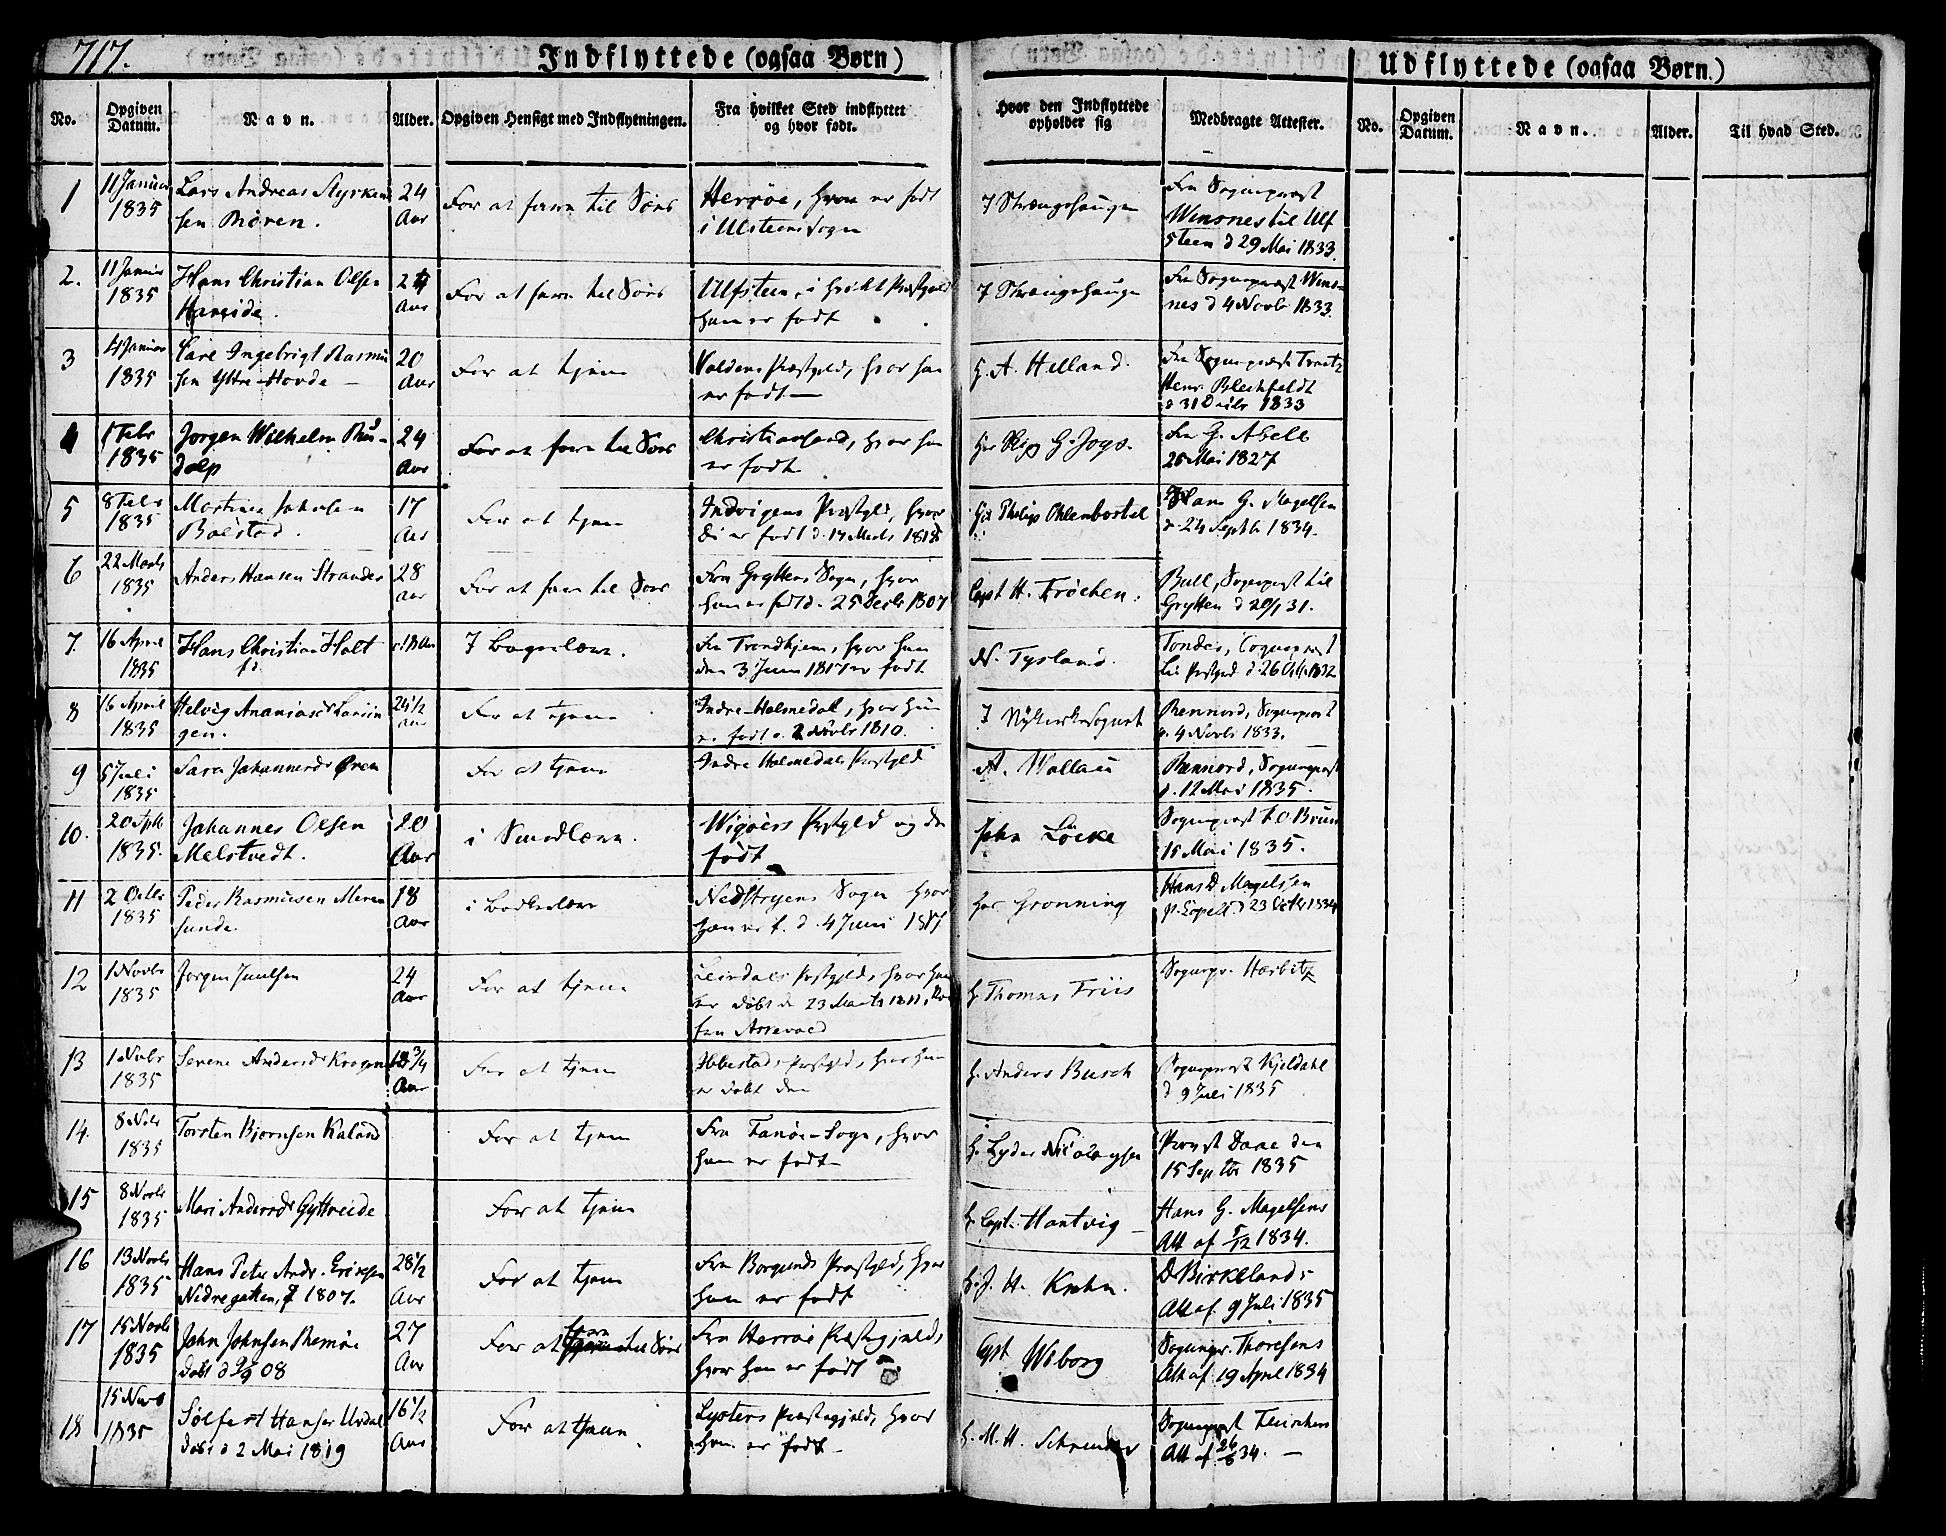 717.
Indflyttede (ogsaa Børn)
Udflyttede (ogsaa Børn.)
No.
Opgiven Datum.
Navn.
Alder.
Opgiven Hensigt med Indflytningen.
Fra hvilket Sted indflyttet
og hvor født.
Hvor den Indflyttede
opholder sig
Medbragte Attester.
No.
Opgiven Datum.
Navn.
Alder.
Til hvad Sted.
1 11 Januar Lars Andreas Styrkar 24 For at fare til Søes Herrøe, hvor er født
1835 sen Aar i Ulsteens Sogn
7 Strangehaugen Fra Sognepræst
til Ulf
steen d 29 Mai 1833.
2. 11 Januar Hans Christian Olsen 24 For at fare til Søes Ulfsteen, i hvilket Præstgjeld
1835 Hareide. Aar han er født
7 Strangehaugen Fra Sognepræst Wins
nes d 4 Novbr 1833.
3 4 Januar Ingebrigt Rasmu 20 For at tjene Voldens Præstgjeld, hvor han
1835 sen Yttre-Hovde Aar er født
H. A. Helland. Fra Sognepræst
Henr. Blechfeldt
d 31 Decbr 1833
4 1 Febr Jørgen Wilhelm 24 For at fare til Søes Christiansand, hvor han
1835 Aar er født
Fra G. Abell
25 Mai 1827
5 8 Febr Johnsen 17 For at tjene Indvigens Præstgjeld, hvor
1835 Bolstad. Aar er født d. 14 Marts 1818
Hr Philip Ohlenbostel Hans G. Magelsen
d. 24 Septbr 1834.
6 22 Marts Anders Hansen Strander 28 For at fare til Søes Fra Gryttens Sogn, hvor
1835 Aar han er født d. 25 Decbr 1807
Capt H. Frøchen. Bull, Sognepræst til
Grytten d 20/1 31.
7. 16 April Hans Christian Holt 18 Aar I Bagerlære. Fra Trondhjem, hvor han
1835 den 3 Juni 1817 er født
N. Tysland. Sognepræst
1832
8 16 April Helvig 24 1/2 For at tjene Indre-Holmedal, hvor hun
1835 gen. Aar er født d. 2 Novbr 1810.
I Nykirkesognet Rennord, Sognepræst
d. 4 Novbr 1833.
9 5 Juli Sara Johannesdr Øren For at tjene Indre Holmedals Præstgjeld
1835
A. Wallace Rennord, Sognepræst
d. 12 Mai 1835.
10. 20 Septbr Johannes Olsen 20 i Smedlære. Wigøers Præstgjeld og der
1835. Melstvedt. Aar født
John Løcke Sognepræst Bruun
15 Mai 1835.
11 2 Octbr Peder Rasmusen Meren 18 i Bødkerlære Nedstryens Sogn hvor
1835 sunde. Aar han er f. d. 4 Juni 1817
Hr Grønning Hans D Magelsen
23 Octbr 1834
12 1 Novbr Jørgen Juulsen 24 For at tjene Leirdals Præstgjeld, hvor han
1835 Aar er døbt d. 23 Marts 1811,
H. Thomas Friis Sognepr. Harbitz
13 1 Novbr Serene Andersdr Krogen 18 3/4 For at tjene Ibbestads Præstgjeld, hvor hun
1835 Aar er døbt den
H. Anders Busch Sognepræst Kjeldahl
d 9 Juli 1835
14. 8 Novbr Torsten Bjørnsen Kaland For at tjene Fra Fanøe-Sogn, hvor
1835 han er født
H. Lyder Nicolaysen Provst Daae den
15 Septbr 1835
15 8 Novbr Mari Andersdr Gyttreide For at tjene
1835
H. Capt. Hantvig Hans G. Magelsens
Att af 5/12 1834.
16 13 Novbr Hans Peter Andr. Ericksen 28 1/2 For at tjene Fra Borgunds Præstgjeld, hvor
1835 Nedregotten, f 1807. Aar han er født
H. J. H. Krohn. D Birkelands
Att af 9 Juli 1835
17 15 Novbr John Johnsen Remøe 27 For at fare til Søes Fra Herrøe Præstegjæld,
1835 døbt d 08 Aar hvor han er født
Capt Wiborg Sognepr. Thoresens
Att af 19 April 1834
18 15 Novb Sølfest Hansen Urdal 16 1/2 For at tjene Lysters Præstegjeld, hvor
1835 døbt d 2 Mai 1819 Aar han er født
H. M. H. Schrender Sognepræst Fleischers
Att af 26/8 34.